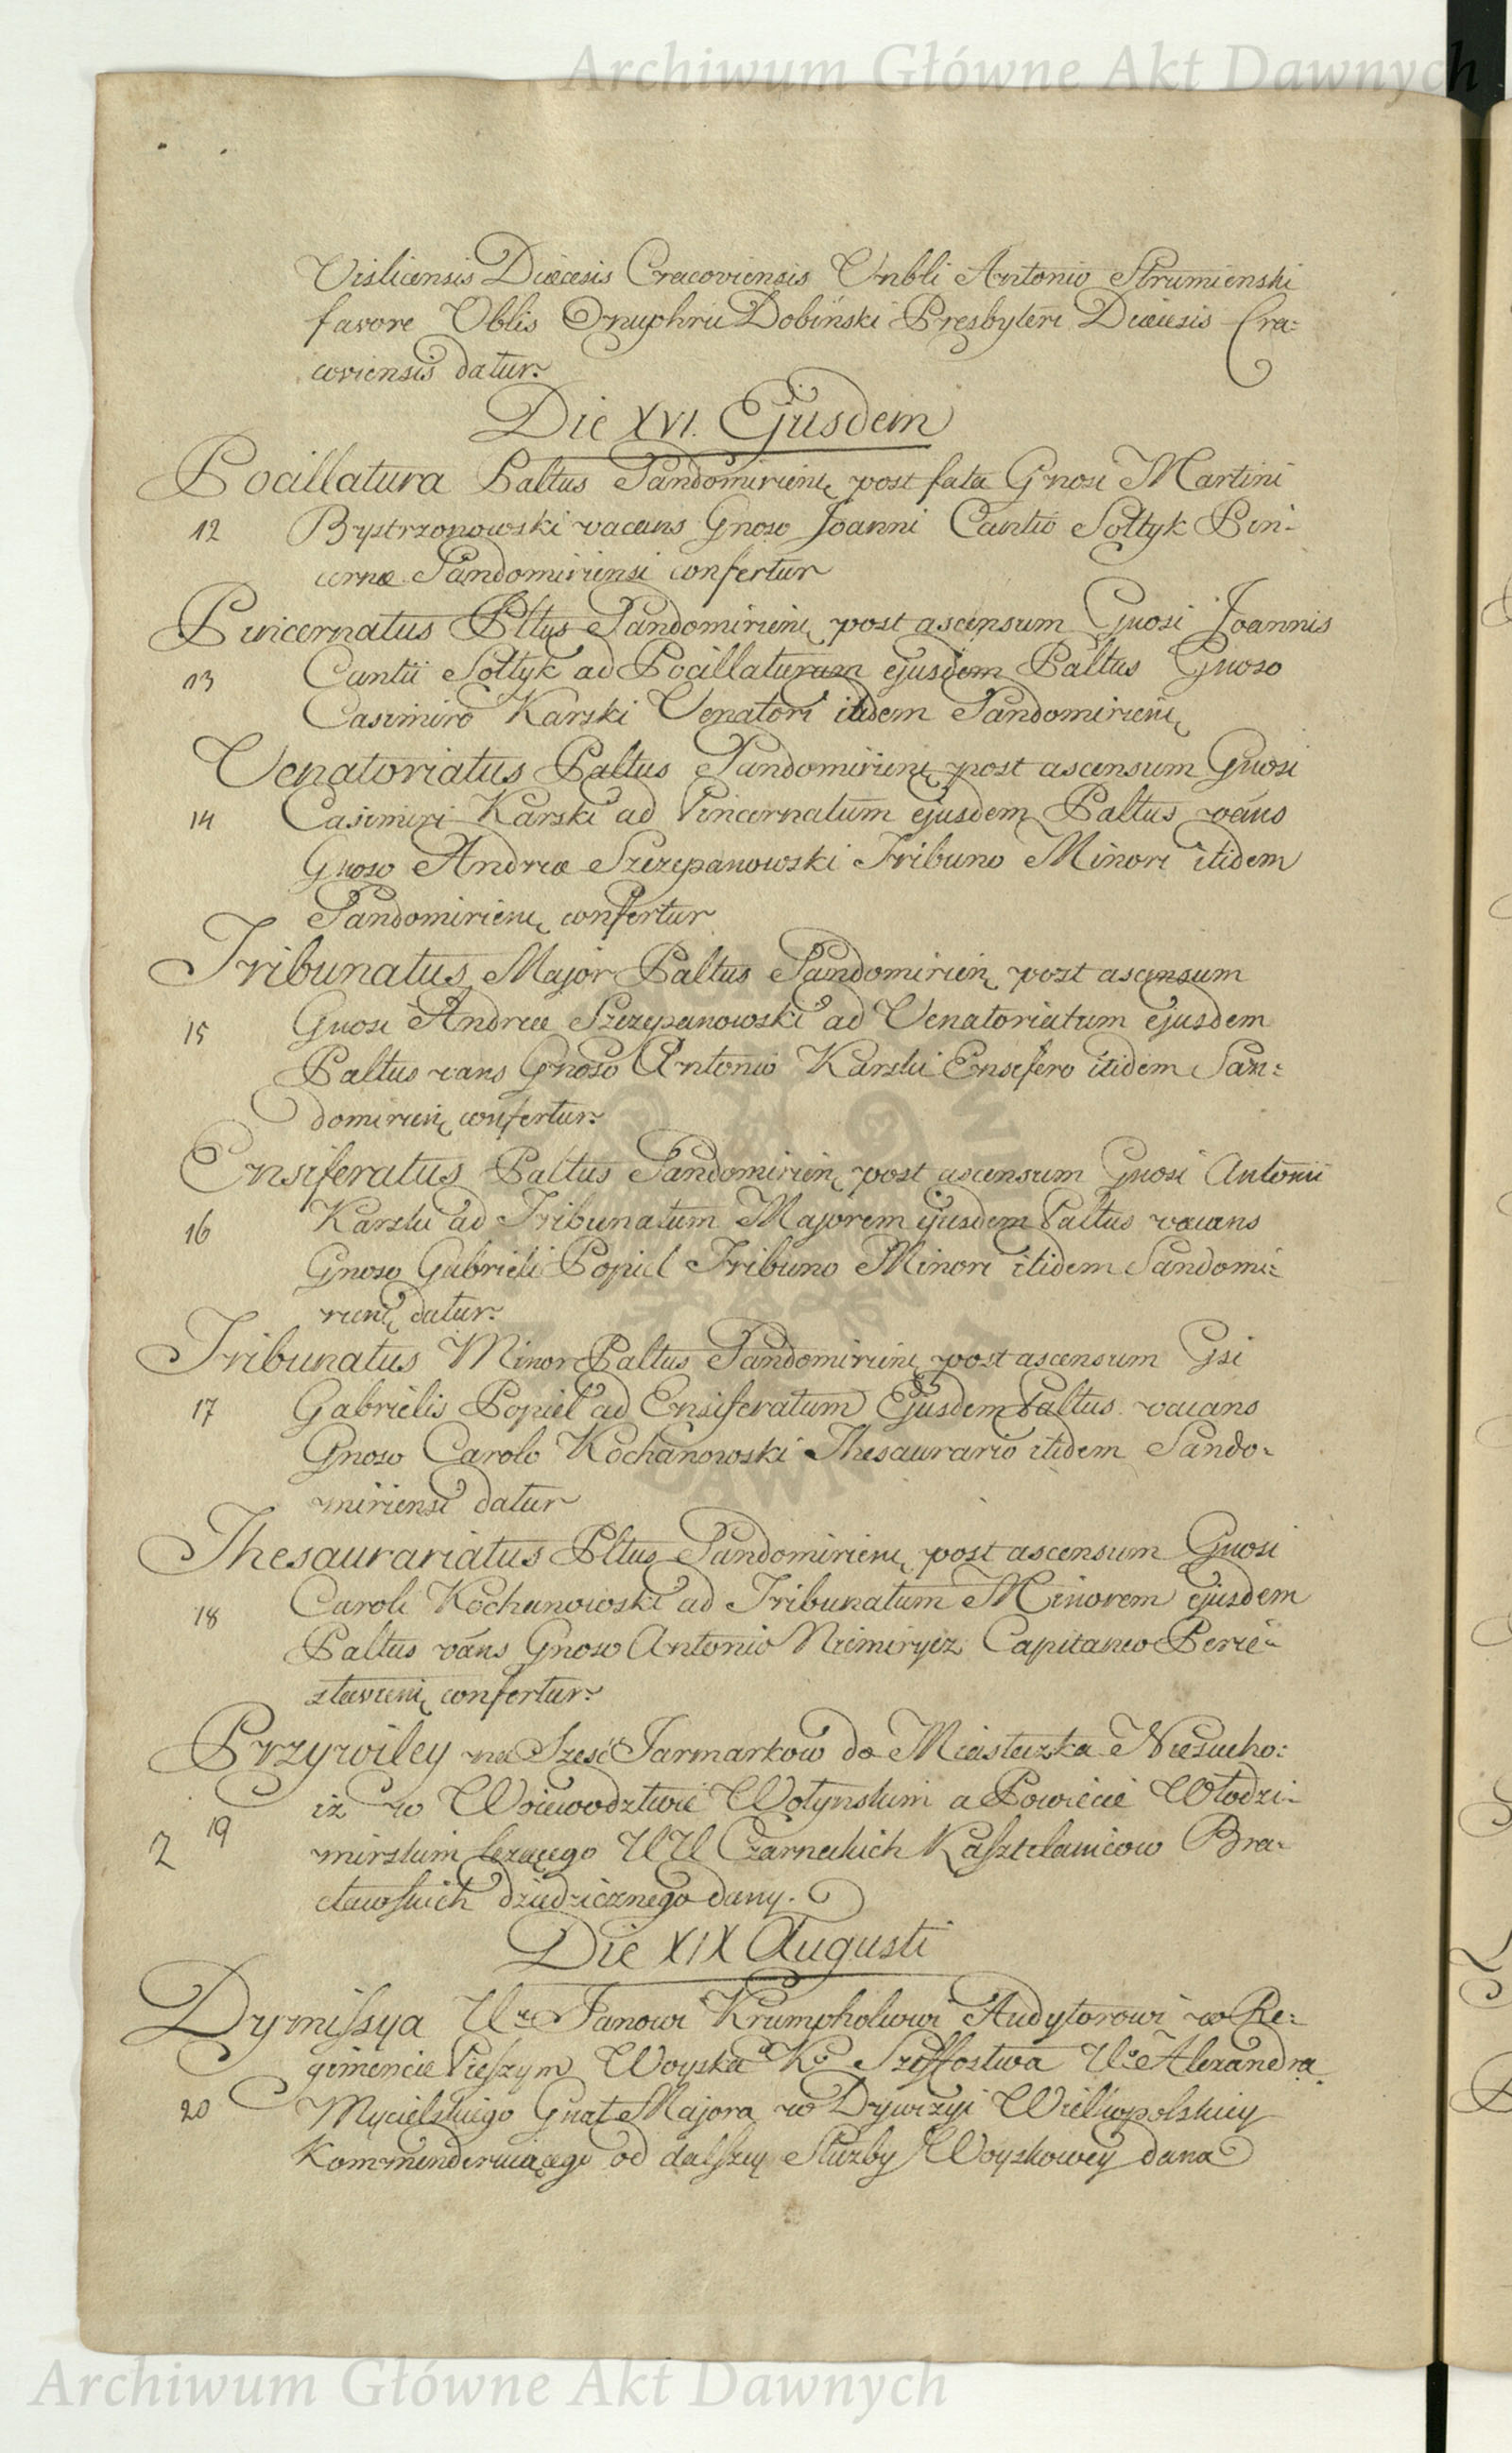 Archiwum Główne Akt Dawnych
Vislicensis Diæcesis Cracoviensis Vnbli Antonio Strumienski
favore Vblis Onuphrii Dobiński Presbyteri Diæcesis Cra=
coviensis datur.
Die XVI. Ejusdem
Pocillatura Paltus Sandomirien̄ post fata Gnosi Martini
12 Bystrzonowski vacans Gnoso Joanni Cantio Sołtyk Pin-
cernæ Sandomiriensi confertur
Pincernatus Pltus Sandomirien̄ post ascensum Gnosi Joannis
13 Cantii Sołtyk ad Pocillaturam ejusdem Paltus Gnoso
Casimiro Karski Venatori itidem Sandomirien̄
Venatoriatus Paltus Sandomirien̄ post ascensum Gnosi
14 Casimiri Karski ad Pincernatum ejusdem Paltus vãns
Gnoso Andreæ Szczepanowski Tribuno Minori itidem
Sandomirien̄ confertur
Tribunatus Major Paltus Sandomirien̄ post ascensum
15 Gnosi Andreæ Szczepanowski ad Venatoriatum ejusdem
Paltus vans Gnoso Antonio Karski Ensifero itidem San=
domirien̄ confertur.
Ensiferatus Paltus Sandomirien̄ post ascensum Gnosi Antonii
16 Karski ad Tribunatum Majorem ejusdem Paltus vacans
Gnoso Gabrieli Popiel Tribuno Minori itidem Sandomi=
rien̄ datur.
Tribunatus Minor Paltus Sandomirien̄ post ascensum Gsi
17 Gabrielis Popiel ad Ensiferatum Ejusdem Paltus vacans
Gnoso Carolo Kochanowski Thesaurario itidem Sando-
miriensi datur
Thesaurariatus Pltus Sandomirien̄ post ascensum Gnosi
18 Caroli Kochanowski ad Tribunatum Minorem ejusdem
Paltus vãns Gnoso Antonio Niemirycz Capitaneo Perie-
slavien̄ confertur.
Przywiley na Sześć Jarmarkow do Miasteczka Niesucho=
iż w Woiewodztwie Wołynskim a Powiecie Włodzi-
2 19 mirskim leżącego UU Czarneckich Kasztelanicow Bra-
cławskich dziedzicznego dany.
Die XIX Augusti
Dymissya Ur Janowi Krumpholcowi Audytorowi w Re=
gimencie Pieszym Woyska Ko Szeffostwa Uo Alexandra
20 Mycielskiego Gnał Majora w Dywizyi Wielkopolskiey
Kommenderuiącego od dalszey Służby Woyskowey dana
Archiwum Główne Akt Dawnych